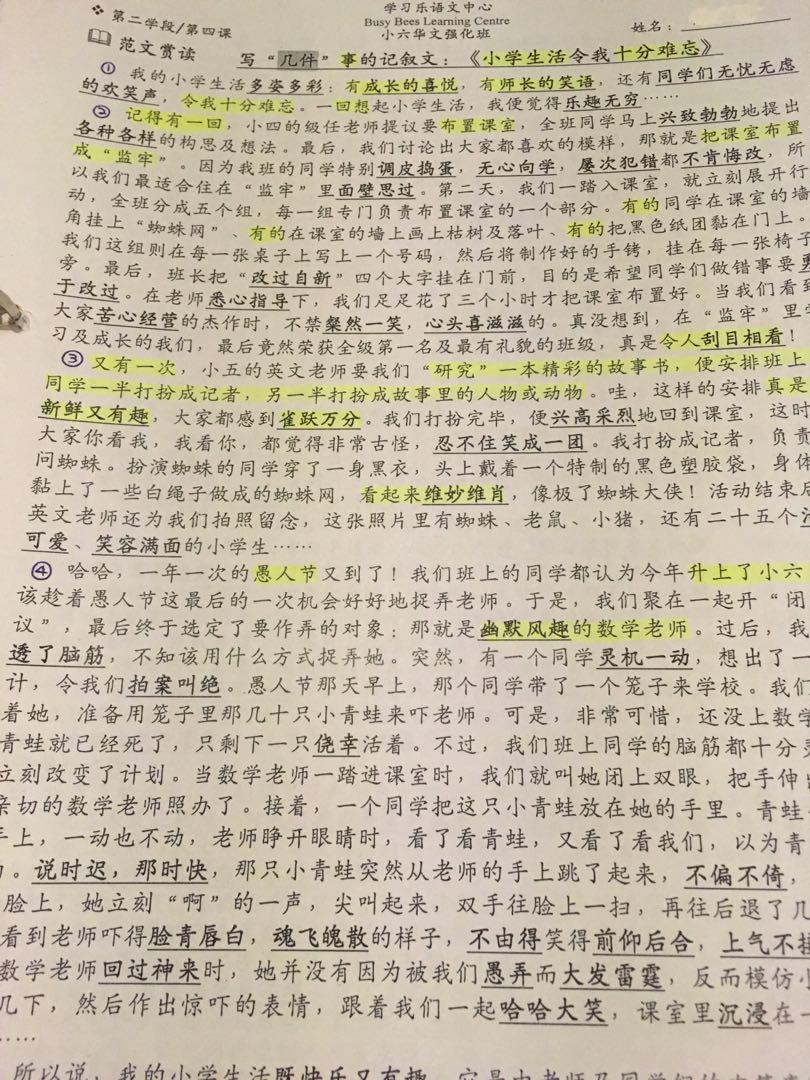 学习乐语文中心
❖ 第二学段/第四课 Busy Bees Learning Centre
小六华文强化班 姓名：
范文赏读 写“几件”事的记叙文：《小学生活令我十分难忘》
① 我的小学生活多姿多彩：有成长的喜悦，有师长的笑语，还有同学们无忧无虑
的欢笑声，令我十分难忘。一回想起小学生活，我便觉得乐趣无穷……
② 记得有一回，小四的级任老师提议要布置课室，全班同学马上兴致勃勃地提出
各种各样的构思及想法。最后，我们讨论出大家都喜欢的模样，那就是把课室布置
成“监牢”。因为我班的同学特别调皮捣蛋，无心向学，屡次犯错都不肯悔改，所
以我们最适合住在“监牢”里面壁思过。第二天，我们一踏入课室，就立刻展开行
动，全班分成五个组，每一组专门负责布置课室的一个部分。有的同学在课室的墙
角挂上“蜘蛛网”、有的在课室的墙上画上枯树及落叶、有的把黑色纸团黏在门上。
我们这组则在每一张桌子上写上一个号码，然后将制作好的手铐，挂在每一张椅子
旁。最后，班长把“改过自新”四个大字挂在门前，目的是希望同学们做错事要勇
于改过。在老师悉心指导下，我们足足花了三个小时才把课室布置好。当我们看到
大家苦心经营的杰作时，不禁粲然一笑，心头喜滋滋的。真没想到，在“监牢”里学
习及成长的我们，最后竟然荣获全级第一名及最有礼貌的班级，真是令人刮目相看！
③ 又有一次，小五的英文老师要我们“研究”一本精彩的故事书，便安排班上
同学一半打扮成记者，另一半打扮成故事里的人物或动物。哇，这样的安排真是
新鲜又有趣，大家都感到雀跃万分。我们打扮完毕，便兴高采烈地回到课室，这时
大家你看我，我看你，都觉得非常古怪，忍不住笑成一团。我打扮成记者，负责
问蜘蛛。扮演蜘蛛的同学穿了一身黑衣，头上戴着一个特制的黑色塑胶袋，身体
黏上了一些白绳子做成的蜘蛛网，看起来维妙维肖，像极了蜘蛛大侠！活动结束后
英文老师还为我们拍照留念，这张照片里有蜘蛛、老鼠、小猪，还有二十五个
可爱、笑容满面的小学生……
④ 哈哈，一年一次的愚人节又到了！我们班上的同学都认为今年升上了小六
该趁着愚人节这最后的一次机会好好地捉弄老师。于是，我们聚在一起开“闭
议”，最后终于选定了要作弄的对象：那就是幽默风趣的数学老师。过后，我
透了脑筋，不知该用什么方式捉弄她。突然，有一个同学灵机一动，想出了一
计，令我们拍案叫绝。愚人节那天早上，那个同学带了一个笼子来学校。我们
着她，准备用笼子里那几十只小青蛙来吓老师。可是，非常可惜，还没上数学
青蛙就已经死了，只剩下一只侥幸活着。不过，我们班上同学的脑筋都十分
立刻改变了计划。当数学老师一踏进课室时，我们就叫她闭上双眼，把手伸出
亲切的数学老师照办了。接着，一个同学把这只小青蛙放在她的手里。青蛙
手上，一动也不动，老师睁开眼睛时，看了看青蛙，又看了看我们，以为青
。说时迟，那时快，那只小青蛙突然从老师的手上跳了起来，不偏不倚，
脸上，她立刻“啊”的一声，尖叫起来，双手往脸上一扫，再往后退了几
看到老师吓得脸青唇白，魂飞魄散的样子，不由得笑得前仰后合，上气不接
数学老师回过神来时，她并没有因为被我们愚弄而大发雷霆，反而模仿小
几下，然后作出惊吓的表情，跟着我们一起哈哈大笑，课室里沉浸在一
……
所以说，我的小学生活既快乐又有趣，